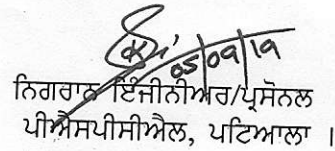 05/09/19
ਨਿਗਰਾਨ ਇੰਜੀਨੀਅਰ/ਪ੍ਰਸੋਨਲ
ਪੀਐਸਪੀਸੀਐਲ, ਪਟਿਆਲਾ ।